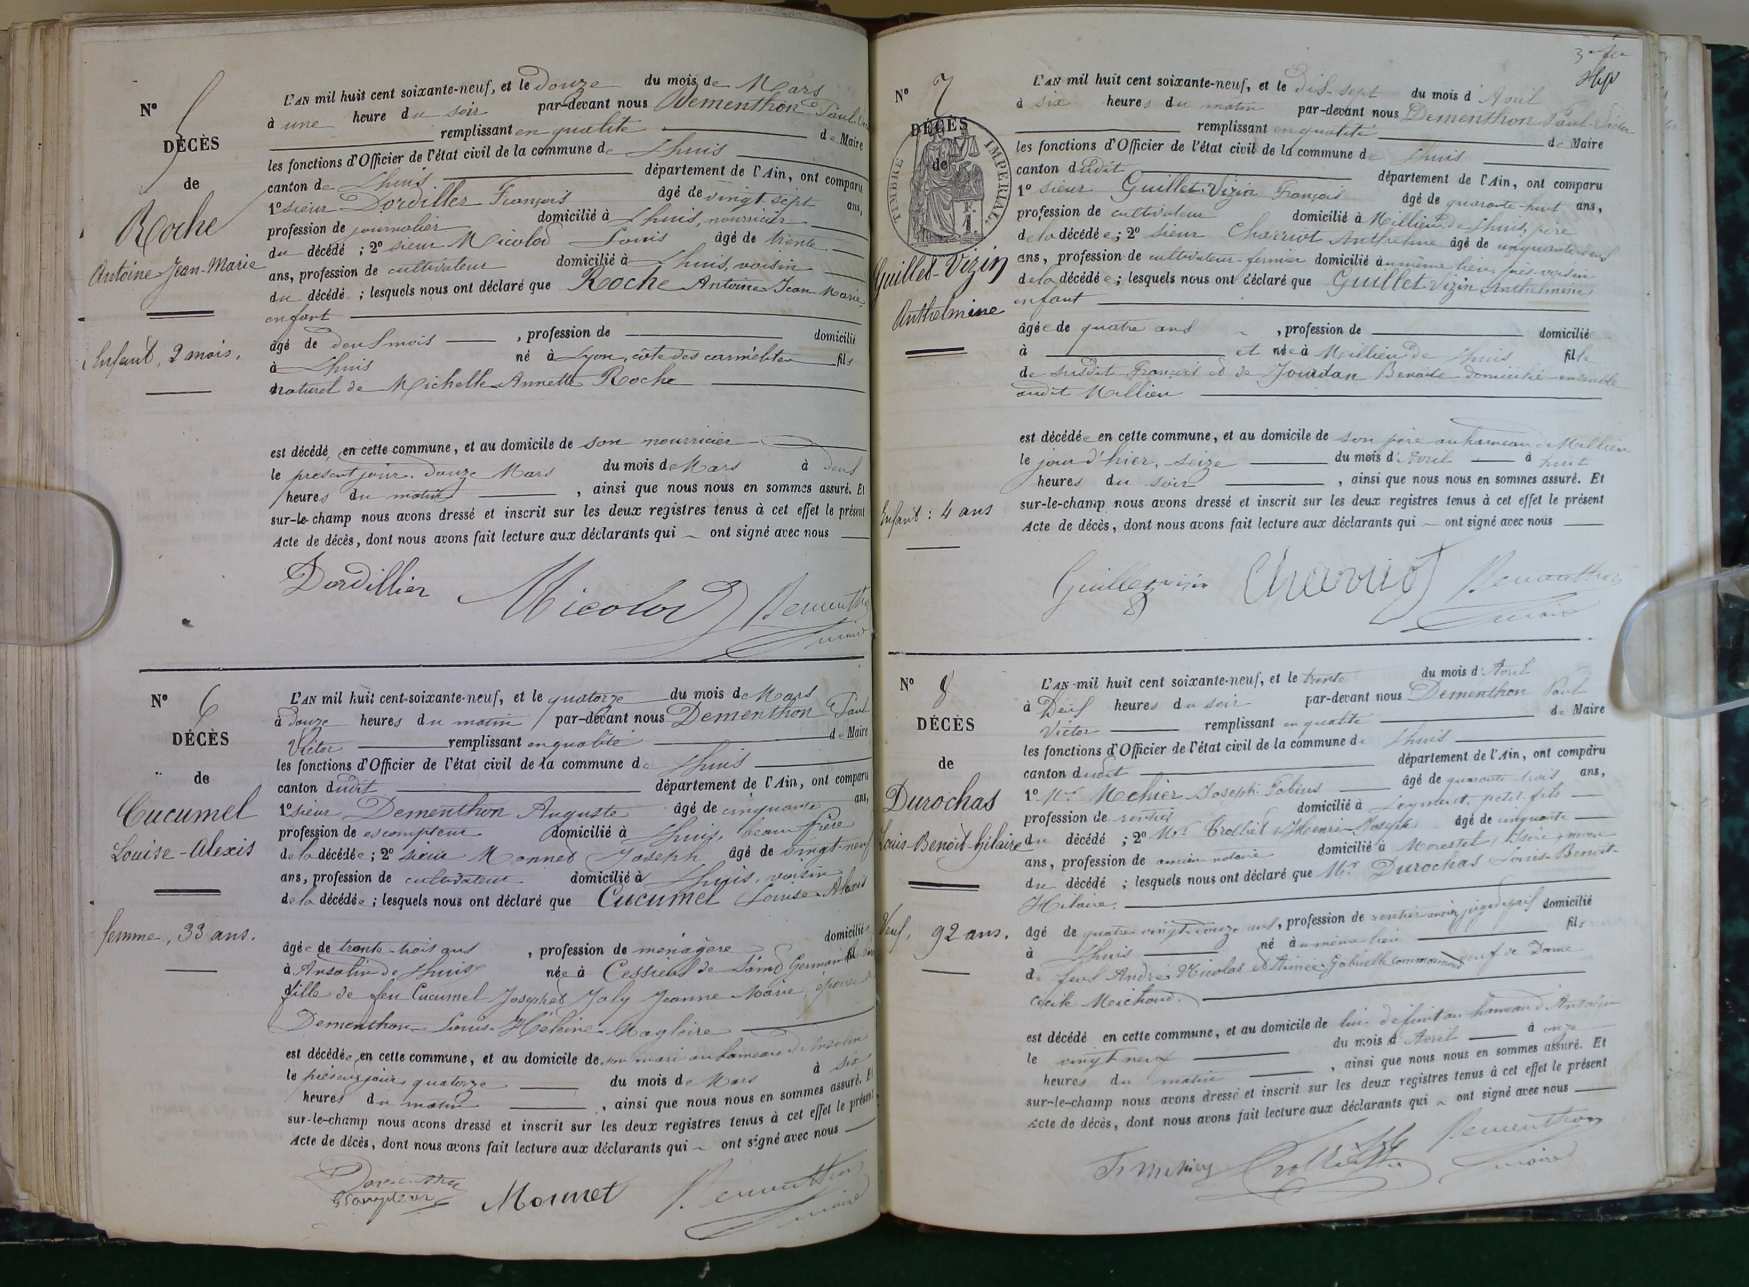 N° 5
DÉCÈS
de
Roche
Antoine Jean-Marie
Enfant, 2 mois.
L'AN mil huit cent soixante-neuf, et le douze du mois de Mars
à une heure du soir par-devant nous Dementhon Paul
remplissant en qualité de Maire
les fonctions d'Officier de l'état civil de la commune de Lhuis
canton de Lhuis département de l'Ain, ont comparu
1° sieur Dordillier François âgé de vingt sept ans,
profession de journalier domicilié à Lhuis, nourricier
du décédé ; 2° sieur Micolod Louis âgé de trente
ans, profession de cultivateur domicilié à Lhuis, voisin
du décédé ; lesquels nous ont déclaré que Roche Antoine Jean Marie,
enfant
âgé de deux mois , profession de domicilié
à Lhuis né à Lyon, côte des carmélites fils
naturel de Michelle Annette Roche
est décédé en cette commune, et au domicile de son nourricier
le présent jour, douze Mars du mois de Mars à deux
heures du matin , ainsi que nous nous en sommes assuré. Et
sur-le-champ nous avons dressé et inscrit sur les deux registres tenus à cet effet le présent
Acte de décès, dont nous avons fait lecture aux déclarants qui ont signé avec nous
Dordillier Micolod Dementhon
maire
N° 6
DÉCÈS
de
Cucumel
Louise-Alexis
femme, 33 ans.
L'AN mil huit cent-soixante-neuf, et le quatorze du mois de Mars
à douze heures du matin par-devant nous Dementhon Paul
Victor remplissant en qualité de Maire
les fonctions d'Officier de l'état civil de la commune de Lhuis
canton dudit département de l'Ain, ont comparu
1° sieur Dementhon Auguste âgé de cinquante ans,
profession de escompteur domicilié à Lhuis, beau frère
de la décédée ; 2° sieur Monnet Joseph âgé de vingt-neuf
ans, profession de cultivateur domicilié à Lhuis, voisin
de la décédée ; lesquels nous ont déclaré que Cucumel Louise-Alexis
âgée de trente-trois ans , profession de ménagère domiciliée
à Ansolin de Lhuis née à Cessieu de Saint Germain
fille de feu Cucumel Joseph et Joly Jeanne Marie, épouse
Dementhon Louis Hélaire Magloire
est décédée en cette commune, et au domicile de son mari au hameau de Ansolin
le présent jour quatorze du mois de Mars à six
heures du matin , ainsi que nous nous en sommes assuré. Et
sur-le-champ nous avons dressé et inscrit sur les deux registres tenus à cet effet le présent
Acte de décès, dont nous avons fait lecture aux déclarants qui ont signé avec nous
Dementhon
Escompteur Monnet Dementhon
maire
N° 7
DÉCÈS
de
TIMBRE IMPÉRIAL
Guillet-Vizin
Anthelmine
Enfant : 4 ans
L'AN mil huit cent soixante-neuf, et le dix-sept du mois d'Avril
à six heures du matin par-devant nous Dementhon Paul Victor
remplissant en qualité de Maire
les fonctions d'Officier de l'état civil de la commune de Lhuis
canton dudit département de l'Ain, ont comparu
1° sieur Guillet-Vizin François âgé de quarante-huit ans,
profession de cultivateur domicilié à Millieu de Lhuis, père
de la décédée ; 2° sieur Charriot Anthelme âgé de
ans, profession de cultivateur-fermier domicilié au même lieu, voisin
de la décédée ; lesquels nous ont déclaré que Guillet-Vizin Anthelmine
enfant
âgée de quatre ans , profession de domicilié
à et née à Millieu de Lhuis fille
de susdit François et de Jourdan Benoite domiciliés ensemble
audit Millieu
est décédée en cette commune, et au domicile de son père au hameau de Millieu
le jour d'hier, seize du mois d'Avril à huit
heures du soir , ainsi que nous nous en sommes assuré. Et
sur-le-champ nous avons dressé et inscrit sur les deux registres tenus à cet effet le présent
Acte de décès, dont nous avons fait lecture aux déclarants qui ont signé avec nous
Guillet vizin Charriot Dementhon
maire
N° 8
DÉCÈS
de
Durochas
Louis-Benoît-Hilaire
Veuf, 92 ans.
L'AN mil huit cent soixante-neuf, et le trente du mois d'Avril
à Deux heures du soir par-devant nous Dementhon Paul
Victor remplissant en qualité de Maire
les fonctions d'Officier de l'état civil de la commune de Lhuis
canton dudit département de l'Ain, ont comparu
1° Mr Mehier Joseph Fabius âgé de quarante trois ans,
profession de rentier domicilié à Leyment, petit-fils
du décédé ; 2° Mr Trolliet Henri Joseph âgé de cinquante
ans, profession de ancien notaire domicilié à Morestel,
du décédé ; lesquels nous ont déclaré que Mr Durochas Louis-Benoit
Hilaire,
âgé de quatre vingt douze ans, profession de rentier ancien juge de paix domicilié
à Lhuis né au même lieu fils
de feux André Nicolas et Aimée Gabrielle veuf de Dame
Cécile Merchand.
est décédé en cette commune, et au domicile de lui défunt au hameau d'Ansolin
le vingt neuf du mois d'Avril à onze
heures du matin , ainsi que nous nous en sommes assuré. Et
sur-le-champ nous avons dressé et inscrit sur les deux registres tenus à cet effet le présent
Acte de décès, dont nous avons fait lecture aux déclarants qui ont signé avec nous
Dementhon
maire